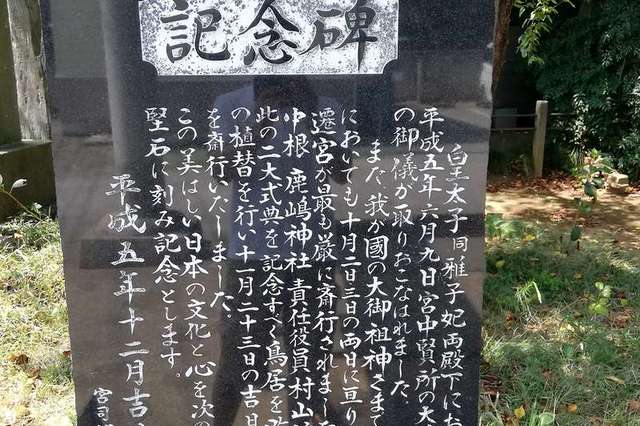 記念碑
皇太子同雅子妃両殿下にお
平成五年六月九日宮中賢所の大
の御儀が取りおこなはれました
また、我が國の大御祖神さまで
においても十月二日三日の両日に亘り
遷宮が最も厳に斎行されまし
中根鹿嶋神社責任役員村山
此の二大式典を記念すべく鳥居を
の植替を行い十一月二十三日の吉日
を斎行いたしました、
この美はしい日本の文化と心を次の
堅石に刻み記念とします。
平成五年十二月吉
宮司